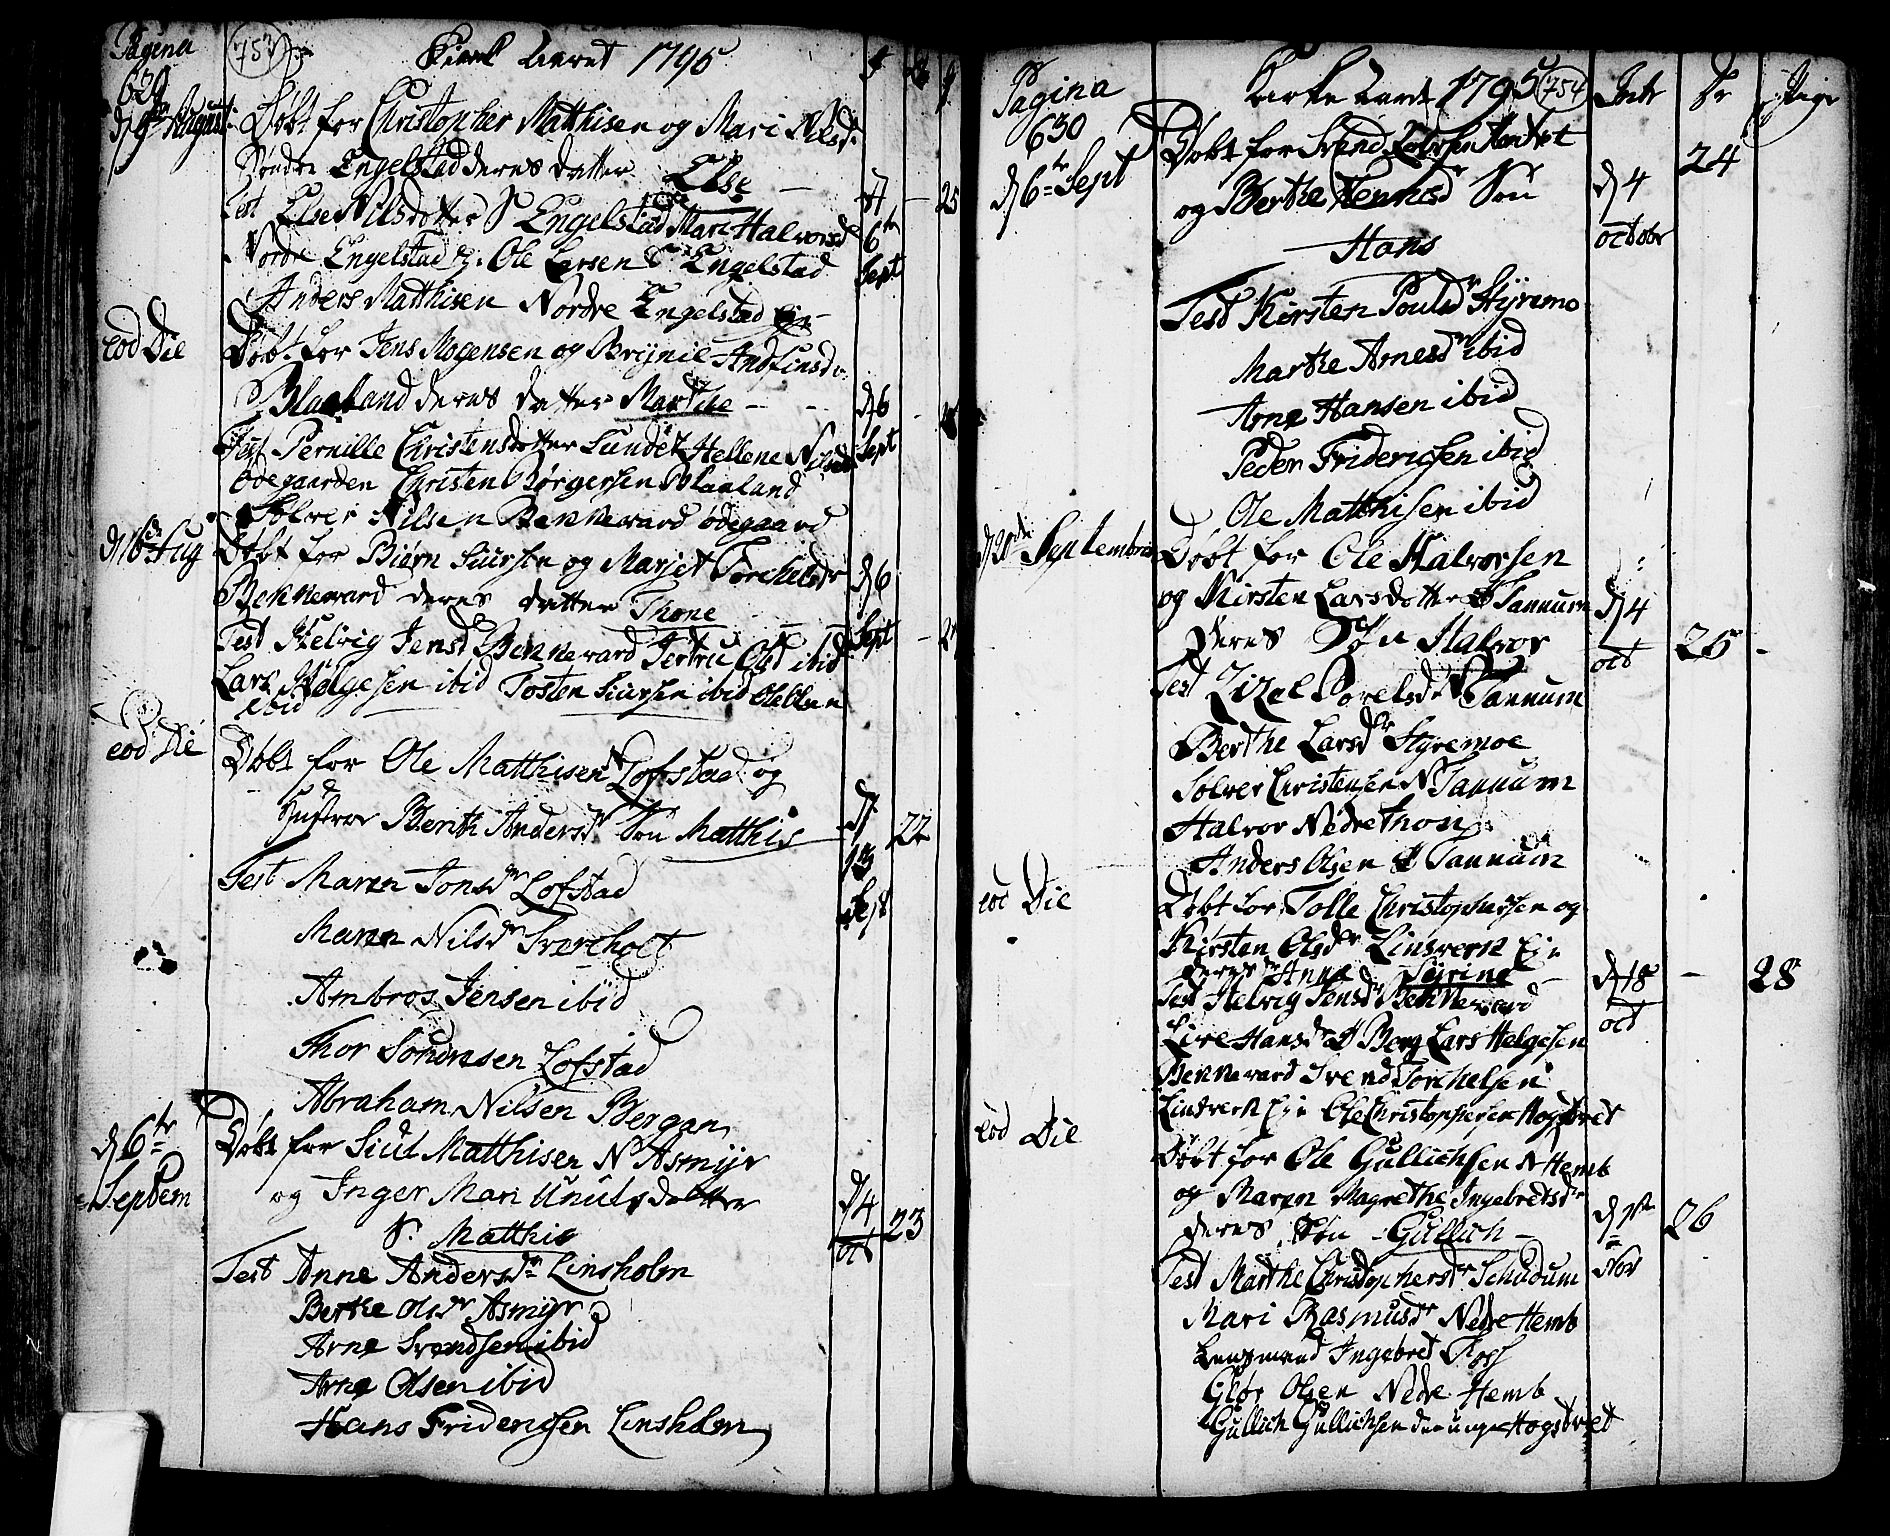 Pagina
629
753
Kirke Aaret 1795
d 9de August
Døbt for Christopher Matthisen og Mari Nilsdr
Søndre Engelstad deres datter Else
Test Else Nilsdotter S Engelstad Mari Halvorsd
Nordre Engelstad Ole Larsen S Engelstad
Anders Matthisen Nordre Engelstad
d 6te Sept
25
eod Die
Døbt for Jens Mogensen og Brynie Andfinsd
Blaaland deres datter Marthe
Test Pernille Christensdotter Lundet Hellene
Ødegaarden Christen Børgersen Blaaland
Solver Nilsen Benneward ødegaard
d 6 Sept
d 16 Aug
Døbt for Biørn Siursen og Marjet Torchelsdr
Benneward deres datter Thone
Test Helvig Jensd Benneward Olsd ibid
Lars Helgesen ibid Tosten Siursen ibid Ole Olsen
ibid
d 6 Sept
eod Die
Døbt for Ole Matthisen Lofstad og
Hustroe Berth Andersdr Søn Matthis
d 13 Sept
22
Test Maren Jonsdr Lofstad
Maren Nilsdr Svereholt
Ambros Jensen ibid
Thor Sørensen Lofstad
Abraham Nilsen Bergan
d 6te Septem
Døbt for Siul Matthisen N Asmyr
og Inger Mari Knutsdatter
S. Matthis
d 4 oct
23
Test Anne Andersdr Linsholm
Berthe Olsdr Asmyr
Arne Svendsen ibid
Arne Olsen ibid
Hans Fridericsen Linsholm
Pagina
630
Kirke Aaret 1795
754
Intr
Dr
Pige
d 6te Sept
Døbt for Svend
og Berthe Søn
Hans
d 4 octobr
24
Test Kirsten Poulsdr Styremo
Marthe Arnesdr ibid
Arne Hansen ibid
Peder Fridericsen ibid
Ole Matthisen ibid
d 20de Septembris
Døbt for Ole Halvorsen
og Kirsten Larsdotter Tannum
deres Søn Halvor
d 4 oct
25
Test Zizel Tannum
Berthe Larsdr Styremoe
Solver Christensen N Tannum
Halvor Nedre
Anders Olsen Tannum
eod Die
Døbt for Tolle Christophersen og
Kirsten Olsdr Linsverk Eje
deres Anne Syrine
d 18 oct
28
Test Helvig Jensdr Bennevard
Live Hansdr Berg Lars Helgesen
Bennevard Svend Torchelsen
Linsverk Eje Ole Christophersen Hogstvet
eod Die
Døbt for Ole Gullichsen N Hemb
og Maren Magrethe Ingebretsdr
deres Søn Gullich
d 1te Nov
26
Test Marthe Christophersdr Schudum
Mari Rasmusdr Nedre Hemb
Lensmand Ingebret Foss
Gløe Olsen Nedre Hemb
Gullich Gullichsen den unge Hogstvet